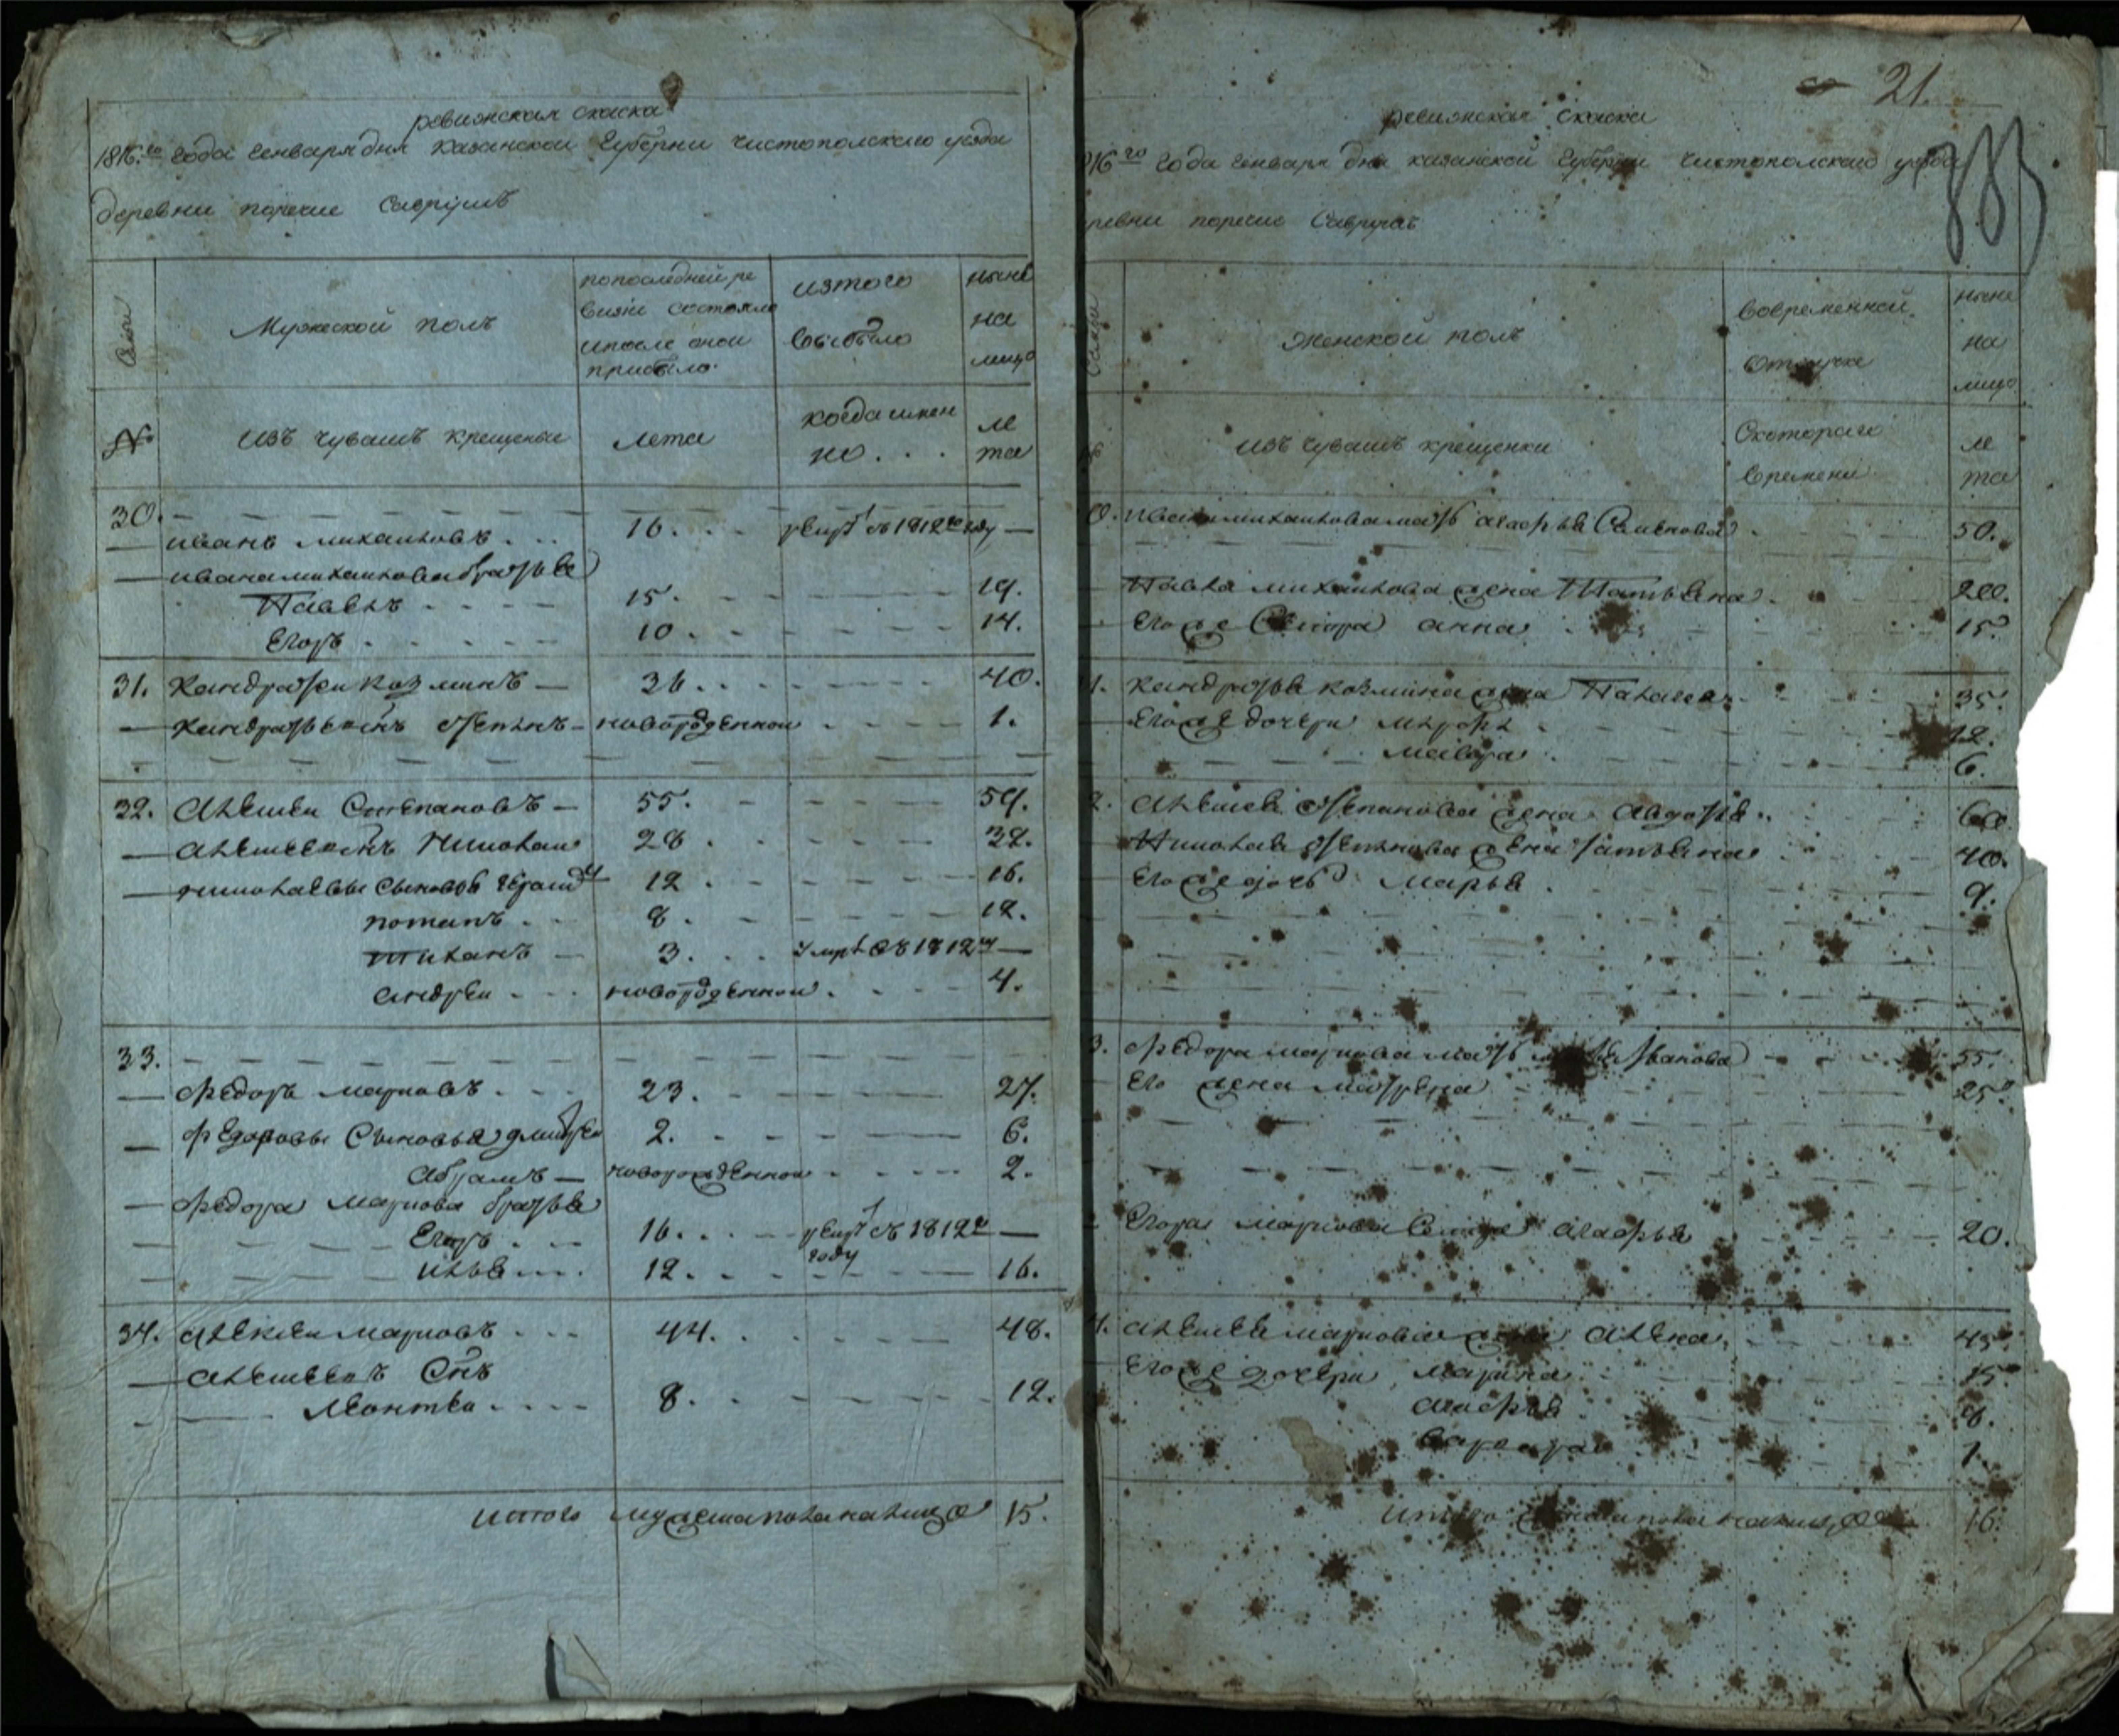 ревизская скаска
1816.го года генваря дня казанской губерни чистополскаго уезда
деревни поречие Савrушъ
Семьи
Мужеской полъ
попоследней ре
визиі состояло
ипосле оной
прибыло.
изтого
выбыло
ныне
на
лицо
№
Изъ чувашъ крещеные
лета
когда имен
но . . .
ле
та
30.
иванъ михаиловъ . . . 16. . . рекрут въ 1812го году —
ивана михаилова братья
Павелъ . . . . 15. 19.
Егоръ . . . . . 10. 14.
31. Кандратеи Козминъ — 36. . 40.
— Кандратьевъ сынъ степанъ — новорожденной 1.
32. Алексеи Степановъ — 55. 59.
— Алексеевъ сынъ Николаи 28. 32.
— николаевы сыновья 12. 16.
потапъ . . . 8. 12.
Тиханъ — 3. . . умре въ 1812м —
андреи . . . новорожденнои . 4.
33.
— федоръ марковъ . . . 23. 27.
— федоровы Сыновья дмитреи 2. 6.
абрамъ — новорожденнои . 2.
— федора маркова братья
Егоръ . . . 16. . . рекрут въ 1812м —
году
илья . . . 12. 16.
34. алексеи марковъ . . . 44. 48.
— алексеевъ Сынъ
Леонтеи . . . . 8. 12.
итого мужеска пола налицо 15.
21.
383
ревизская скаска
816го года генваря дня казанской губерни чистополскаго уезда
ревни поречие
Семьи
Женской полъ
вовременной
отлучке
ныне
на
лицо
изъ чувашъ крещенки
скотораго
времени
ле
та
0. ивана михаилова мать агафья Семенова 50.
Павла михаилова жена Татьяна . 20.
Его же Сестра анна . 15.
1. Кандратья козмина жена Палагея . 35.
Его же дочери 12.
мавра . 6.
2. алексея степанова жена авдотья . . 60.
Николая степанова жена татьяна 40.
его же дочь марья . 9.
3. федора маркова мать иванова 55.
Его жена матрена 25.
Егора маркова Сестра агафья 20.
4. алексея маркова жена алена . 45.
Его же дочери марина . 15.
агафья 8.
варвара 1.
итого женска пола налицо 16.